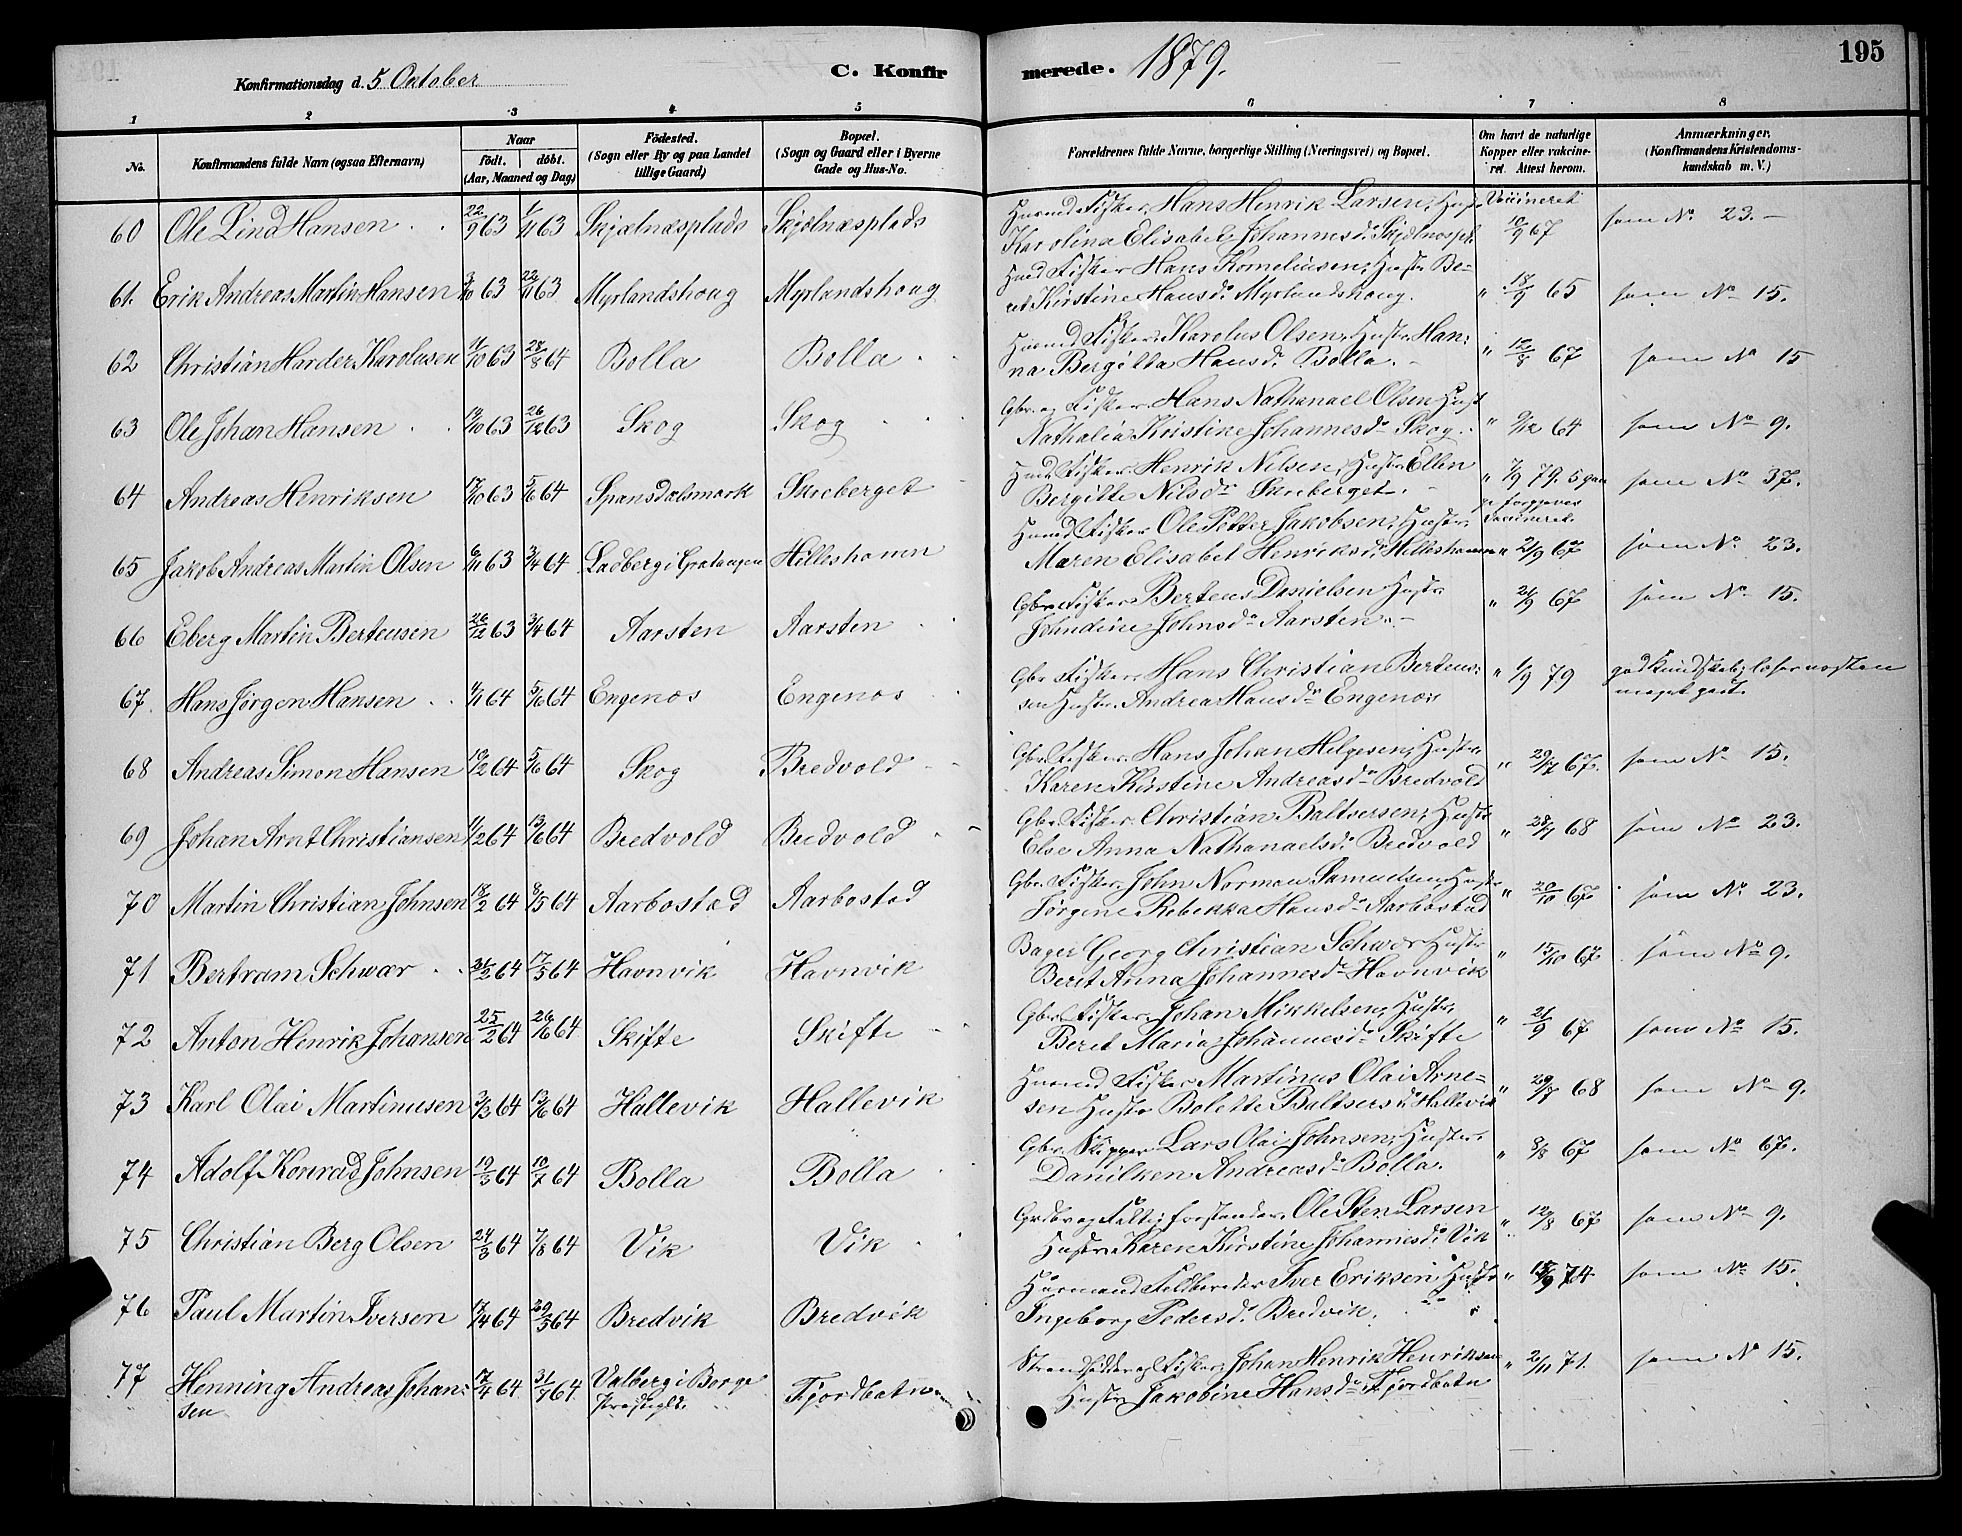 195
Konfirmationsdag d. 5 Oktober C. Konfirmerede. 1879.
1 2 3 4 5 6 7 8
No. Konfirmandens fulde Navn (ogsaa Efternavn) Naar født. døbt. (Aar, Maaned og Dag) Fødested. (Sogn eller By og paa Landet tillige Gaard) Bopæl. (Sogn og Gaard eller i Byerne Gade og Hus-No. Forældrenes fulde Navne, borgerlige Stilling (Næringsvei) og Bopæl. Om havt de naturlige Kopper eller vakcineret. Attest herom. Anmærkninger. (Konfirmandens Kristendomskundskab m. V.)
60 Ole Lind Hansen 22/9 63 1/11 63 Skjælnæsplads Skjelnæsplads Husmd Fisker Hans Henrik Larsen, Hust. Vaccineret 10/9 67 som No 23.
Karolina Elisabet Johannesd. Skjelnæspl.
61. Erik Andreas Martin Hansen 3/10 63 22/11 63 Myrlandshaug Myrlandshaug Husmd Fisker Hans Korneliusen, Hustr. Be- " 18/9 65 som No 15.
ret Kirstine Hansd. Myrlandshaug.
62 Christian Harder Karolusen 4/10 63 28/8 64 Bolla Bolla Husmd Fisker Karolus Olsen, Hustr Han- " 12/8 67 som No 15
na Bergitta Hansd. Bolla.
63 Ole Johan Hansen 13/10 63 26/12 63 Skog Skog Gbr. og Fisker Hans Nathanael Olsen Hust " 9/12 64 som No 9.
Nathalia Kristine Johannesd. Skog.
64 Andreas Henriksen 17/10 63 5/6 64 Spansdalsmark Skreberget Husmd Fisker Henrik Nilsen, Hustr Ellen " 7/9 79. 5 gan- som No 37.
Bergitte Nilsdr Skreberget. ge forgjæves vaccineret.
65 Jakob Andreas Martin Olsen 6/11 63 3/4 64 Ladberg i Gratangen Hilleshamn Husmd Fisker Ole Petter Jakobsen, Hustr. " 21/9 67 som No 23.
Maren Elisabet Henriksd. Hilleshamn
66 Eberg Martin Berteusen 26/12 63 3/4 64 Aarsten Aarsten Gbr Fisker Berteus Danielsen Hustr " 21/9 67 som No 15.
Johndine Johnsdr Aarsten.
67. Hans Jørgen Hansen 4/1 64 5/6 64 Engenæs Engenæs Gbr Fisker Hans Christian Berteus- " 1/9 79 god Kundskab; læser næsten
sen Hustr. Andrea Hansdr Engenæs meget godt.
68 Andreas Simon Hansen 13/2 64 5/6 64 Skog Bredvold Gbr Fisker Hans Johan Helgesen, Hustr. " 29/7 67. som No 15.
Karen Kirstine Andreasdr Bredvold
69 Johan Arnt Christiansen 11/2 64 13/6 64 Bredvold Bredvold Gbr Fisker Christian Baltsersen, Hustr " 28/7 68 som No 23.
Else Anna Nathanaelsd. Bredvold
70 Martin Christian Johnsen 18/2 64 8/5 64 Aarbostad Aarbostad Gbr. Fisker John Norman Samuelsen, Hustr " 20/10 67 som No 23.
Jørgene Rebekka Hansdr Aarbostad
71 Bertram Schwær 21/2 64 17/5 64 Havnvik Havnvik Bager Georg Christian Schwær Hustr " 15/10 67 som No 9.
Berit Anna Johannesdr Havnvik
72 Anton Henrik Johansen 25/2 64 26/6 64 Skifte Skifte Gbr. Fisker Johan Mikkelsen, Hustr. " 21/9 67 som No 15.
Beret Maria Johannesdr Skifte
73 Karl Olai Martinusen 3/3 64 13/6 64 Hallevik Hallevik Husmd Fisker Martinus Olai Arne- " 29/7 68 som No 9.
sen Hustr Bolette Baltsersd. Hallevik
74 Adolf Konrad Johnsen 19/3 64 10/7 64 Bolla Bolla Gbr. Skipper Lars Olai Johnsen, Hustr. " 9/8 67 som No 67.
Danilken Andreasdr Bolla.
75 Christian Berg Olsen 24/3 64 7/8 64 Vik Vik Grdbr og Fattigforstander Ole Sten Larsen " 12/8 67 som No 9.
Hustr. Karen Kirstine Johannesd. Vik
76 Paul Martin Iversen 17/4 64 29/5 64 Bredvik Bredvik Husmand Feldbereder Iver Eriksen, Hustr " 15/9 74 som No 15.
Ingeborg Pedersd. Bredvik.
77 Henning Andreas Johan- 17/4 64 31/7 64 Valberg i Borge Fjordbotn Strandsidder og Fisker Johan Henrik Henriksen " 2/11 71. som No 15.
sen Præstegld. Hustr Jakobine Hansdr Fjordbotn